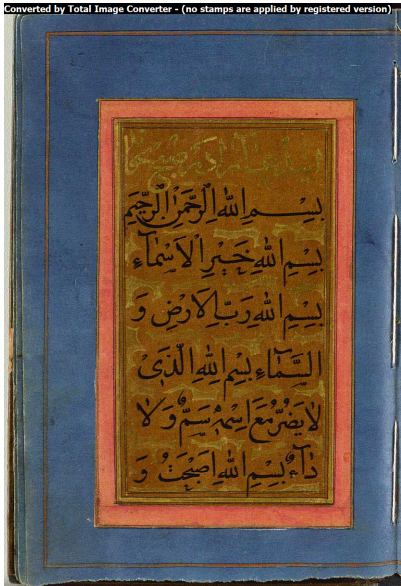 Converted by Total Image Converter - (no stamps are applied by registered version)
بِسْمِ اللهِ الرَّحْمٰنِ الرَّحِيمِ
بِسْمِ اللهِ خَيْرِ الْاَسْمَآءِ
بِسْمِ اللهِ رَبِّ الْاَرْضِ وَ
السَّمَآءِ بِسْمِ اللهِ الَّذِى
لَا يَضُرُّ مَعَ اسْمِهٖ سَمٌّ وَلَا
دَآءٌ بِسْمِ اللهِ اَصْبَحْتُ وَ